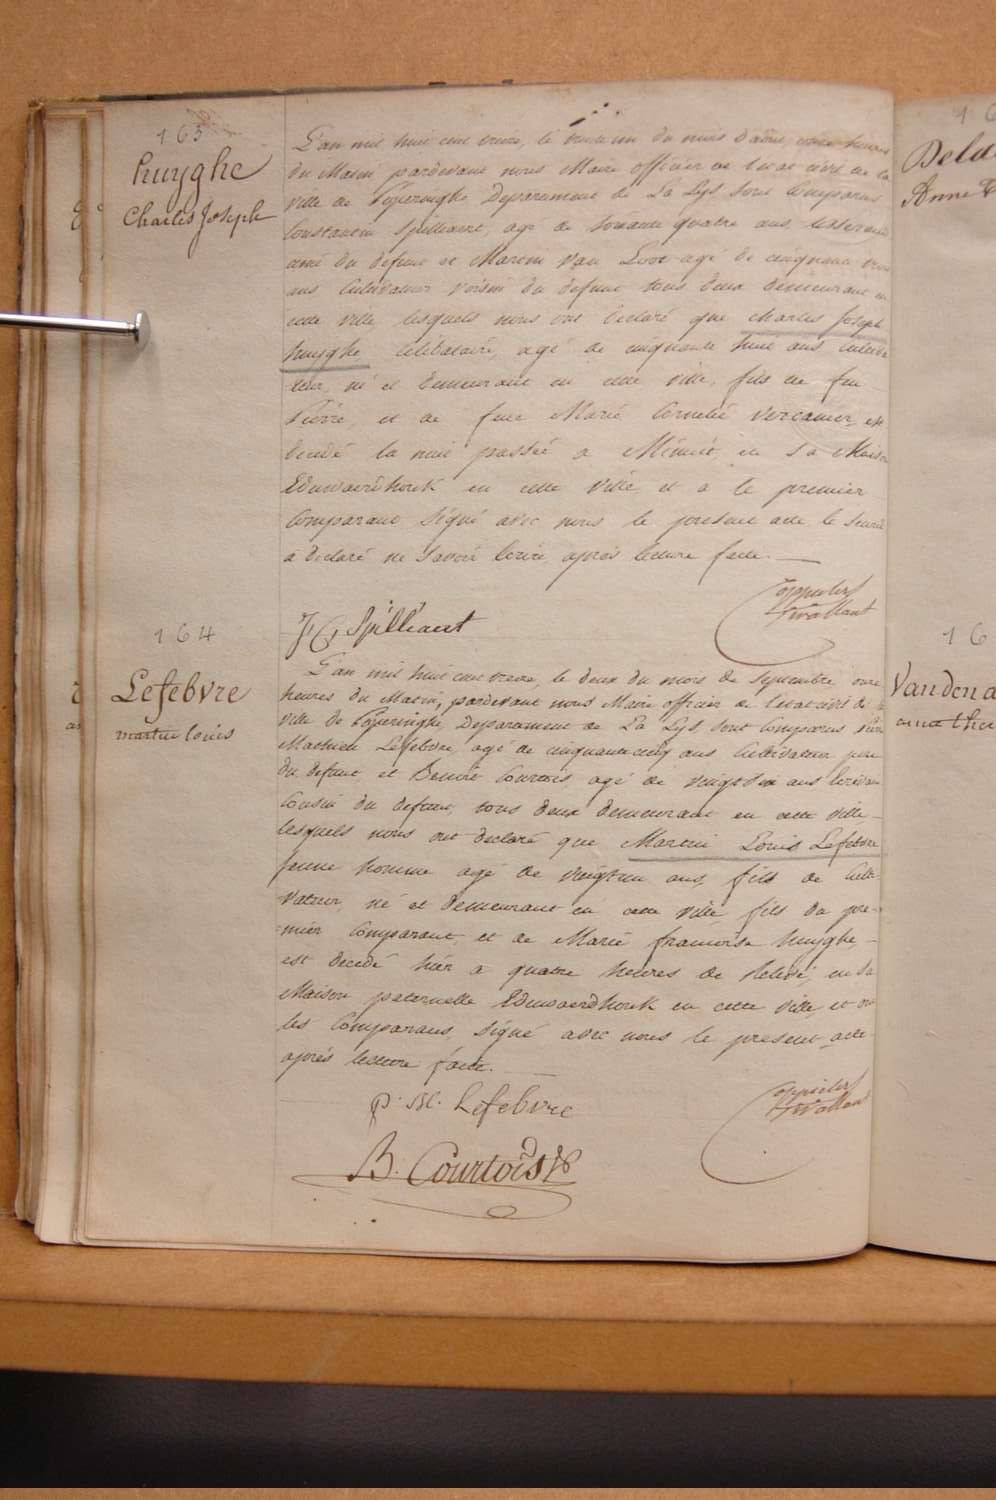 163
huyghe
Charles Joseph
L'an mil huit cent treize, le trente un du mois d'aout, onze heures
du Matin pardevant nous Maire officier de l'etat civil de la
ville de Poperinghe Departement de La Lys sont comparus
Constantin Spilliaert, agé de soixante quatre ans,
ami du defunt et Martin Van Loot agé de cinquante trois
ans Cultivateur voisin du defunt tous deux demeurant en
cette ville, lesquels nous ont declaré que charles Joseph
huyghe célibataire, agé de cinquante huit ans cultiva
teur, né et demeurant en cette ville, fils de feu
Pierre et de feue Marie Cornelie Vercamer, est
decedé la nuit passée a Minuit, en sa Maison
Eduwaerdhouk en cette ville, et a le premier
Comparant signé avec nous le present acte, le second
a declaré ne savoir ecrire, après lecture faite.
JC Spilliaert
164
Lefebvre
martin louis
L'an mil huit cent treize, le deux du mois de Septembre onze
heures du Matin, pardevant nous Maire officier de l'etat civil de la
ville de Poperinghe, Departement de La Lys sont Comparus Pierre
Mathieu Lefebvre, agé de cinquante cinq ans Cultivateur pere
du defunt et Benoit Courtois, agé de vingt six ans
Cousin du defunt, tous deux demeurant en cette ville,
lesquels nous ont declaré que Martin Louis Lefebvre
Jeune homme agé de vingt un ans, fils de Culti-
vateur, né et demeurant en cette ville, fils du pre-
mier Comparant, et de Marie francoise huyghe,
est decedé hier a quatre heures de relevée, en sa
Maison paternelle Eduwaerdhouk en cette ville, et ont
les Comparans, signé avec nous le present acte
après lecture faite.
p. M. Lefebvre
B. Courtois
16
Dela
Anne
16
Vanden